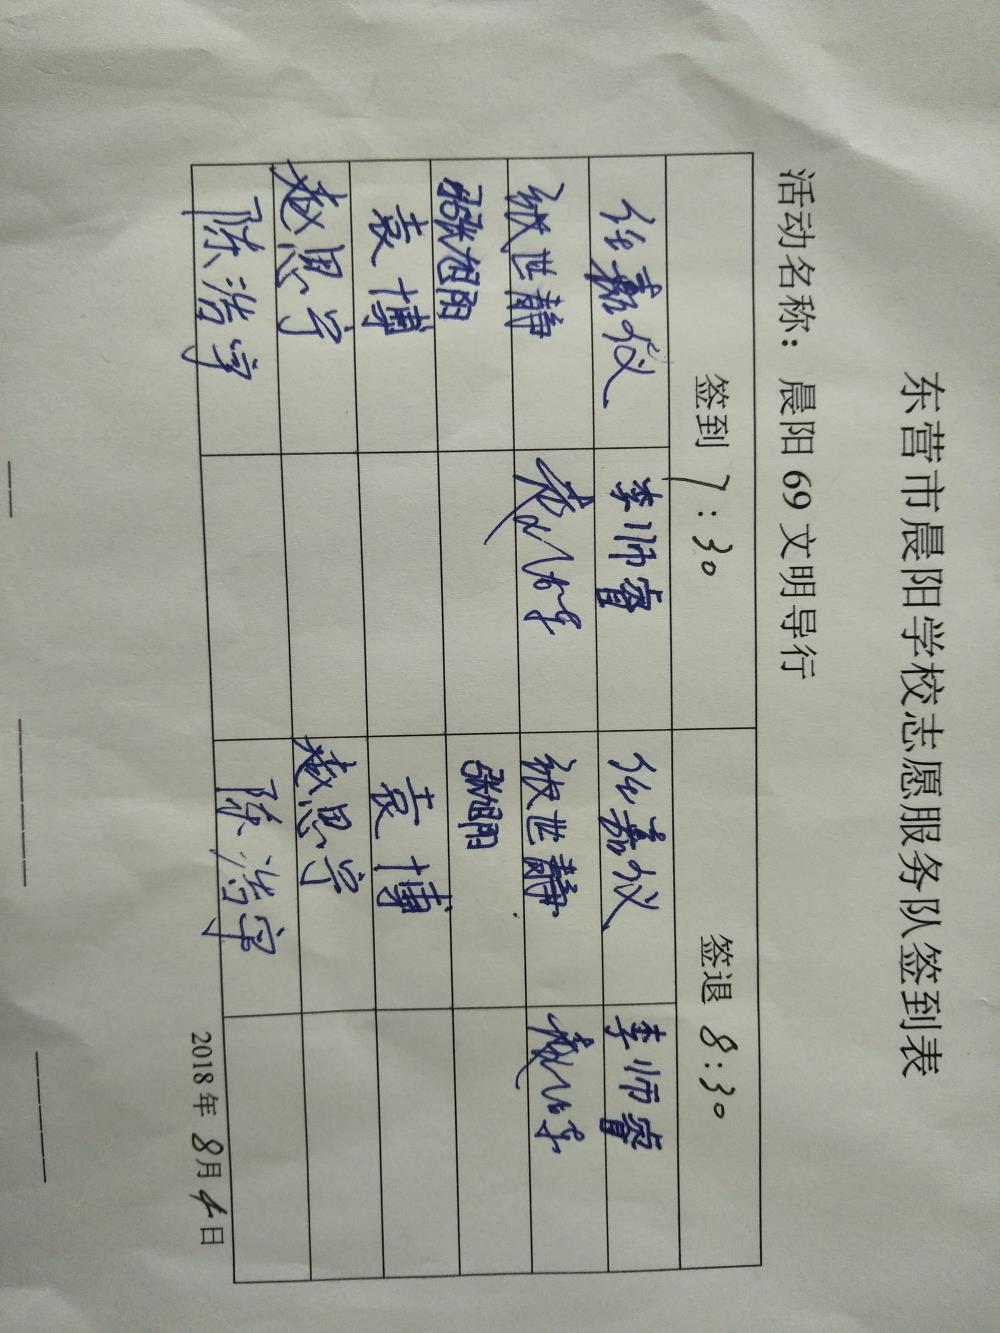 东营市晨阳学校志愿服务队签到表
活动名称：晨阳69文明导行
签到 7:30 签退 8:30
任嘉仪 李师睿 任嘉仪 李师睿
世静 世静
张旭阳 张旭阳
袁博 袁博
赵思宁 赵思宁
陈浩宇 陈浩宇
2018年8月4日